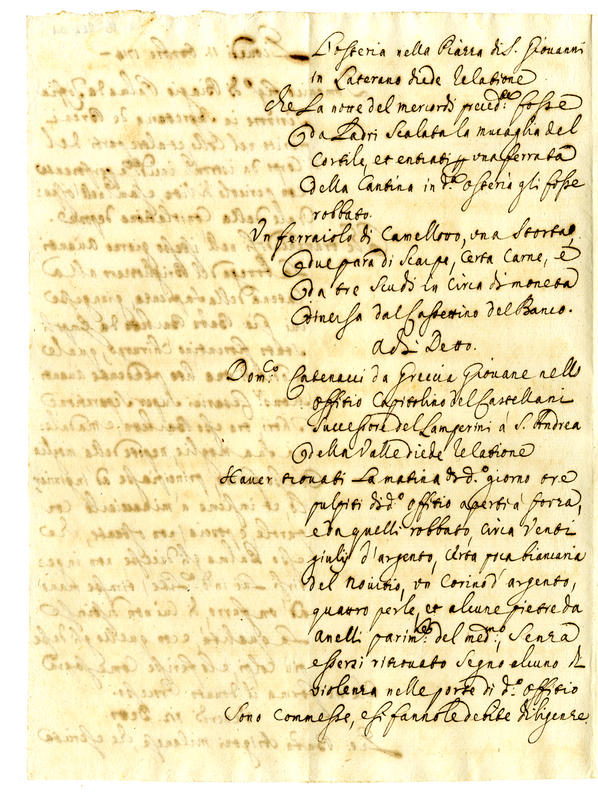 L'osteria nella Piazza di S. Giovanni
in Laterano diede relatione
che La notte del mercordì preced.te fosse
da Ladri Scalata la muraglia del
Cortile, et entrati p una ferrata
della Cantina in d.ta osteria gli fosse
robbato.
Un ferraiolo di Camellotto, una Storta,
due para di Scarpe, Certa Carne, è
da tre Scudi in Circa di moneta
diversa dal Cassettino del Banco.
Adì Detto.
Dom.co Catenacci da Greccia Giovane nell
Offitio Capitolino del Castellani
Successore del Lamperini à S. Andrea
della Valle diede relatione
Haver trovati La matina di d.o giorno tre
pulpiti di d.o offitio aperti à forza,
e da quelli robbato, Circa Venti
giulij d'argento, Certa poca biancaria
del Novitio, un Corino d'argento,
quattro perle, et alcune pietre da
anelli parim.te del med.mo, Senza
essersi ritrovato Segno alcuno di
violenza nelle porte di d.o offitio
Sono Commesse, e si fanno le debite diligenze.